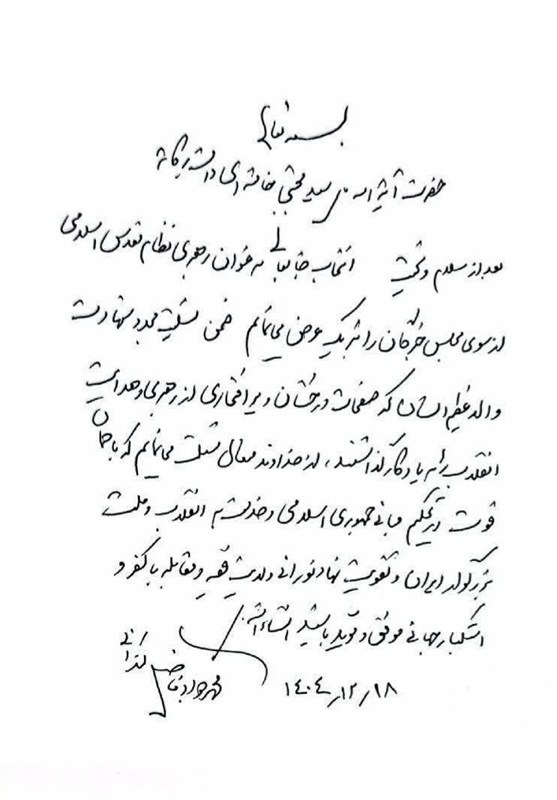 بسمه تعالی
حضرت آیة الله سید مجتبی خامنه‌ای دامت برکاته
بعد از سلام و تحیت انتخاب جنابعالی به عنوان رهبری نظام مقدس اسلامی
از سوی مجلس خبرگان را تبریک عرض می‌نمایم ضمن تسلیت مجدد شهادت
والد عظیم الشأن که صفحات درخشان و پر افتخاری از رهبری و هدایت
انقلاب را به یادگار گذاشتند، از خداوند متعال مسئلت می‌نمایم که با همان
قوت در تحکیم مبانی جمهوری اسلامی و خدمت به انقلاب و ملت
بزرگوار ایران و تقویت نهاد نورانی ولایت فقیه و مقابله با کفر و
استکبار جهانی موفق و مؤید باشید انشاءالله.
محمد جواد فاضل لنکرانی
۱۴۰۴/۱۲/۱۸